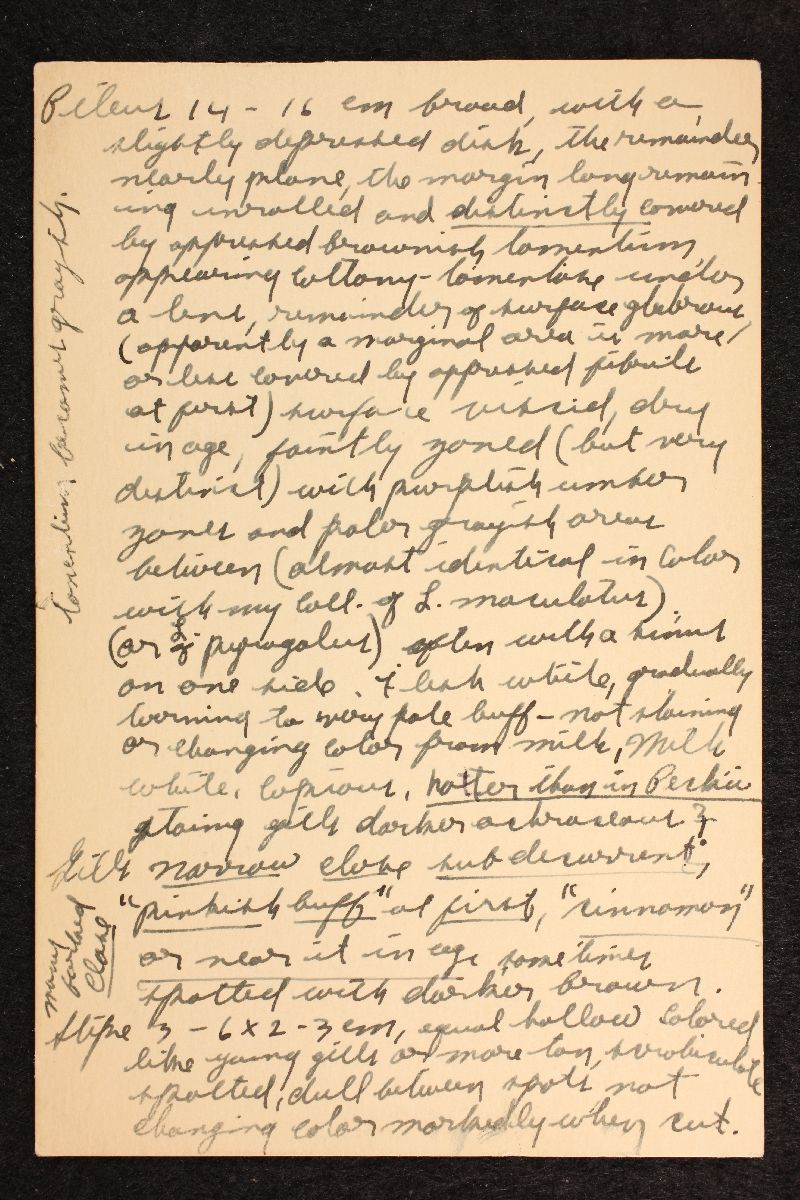 Pileus 14 - 16 cm broad, with a
slightly depressed disk, the remainder
nearly plane, the margin long remain-
ing inrolled and distinctly covered
by appressed brownish tomentum,
appearing cottony-tomentose under
a lens, remainder of surface glabrous
(apparently a marginal area is more
or less covered by appressed fibrils
at first) surface viscid, dry
in age, faintly zoned (but very
distinct) with purplish umber
zones and paler grayish areas
between (almost identical in color
with my coll. of L. maculatus)
(or of pyrogalus) often with a sinus
on one side. Flesh white, gradually
turning to very pale buff - not staining
or changing color from milk, Milk
white, copious, hotter than in Peckii
staing gills darker ochraceous ?
Gills narrow close subdecurrent,
"pinkish buff" at first, "cinnamon"
or near it in age sometimes
spotted with darker brown.
Stipe 3 - 6 x 2 - 3 cm, equal hollow colored
like young gills or more tan, scrobiculate
spotted, dull between spots not
changing color markedly when cut.
tomentum becomes grayish.
many
forked
close